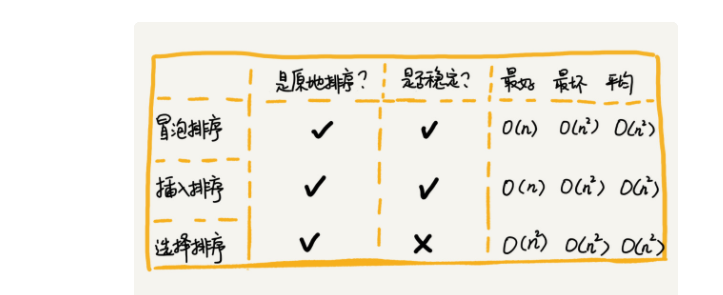 是原地排序? 是否稳定? 最好 最坏 平均
冒泡排序 ✓ ✓ O(n) O(n²) O(n²)
插入排序 ✓ ✓ O(n) O(n²) O(n²)
选择排序 ✓ ✗ O(n²) O(n²) O(n²)